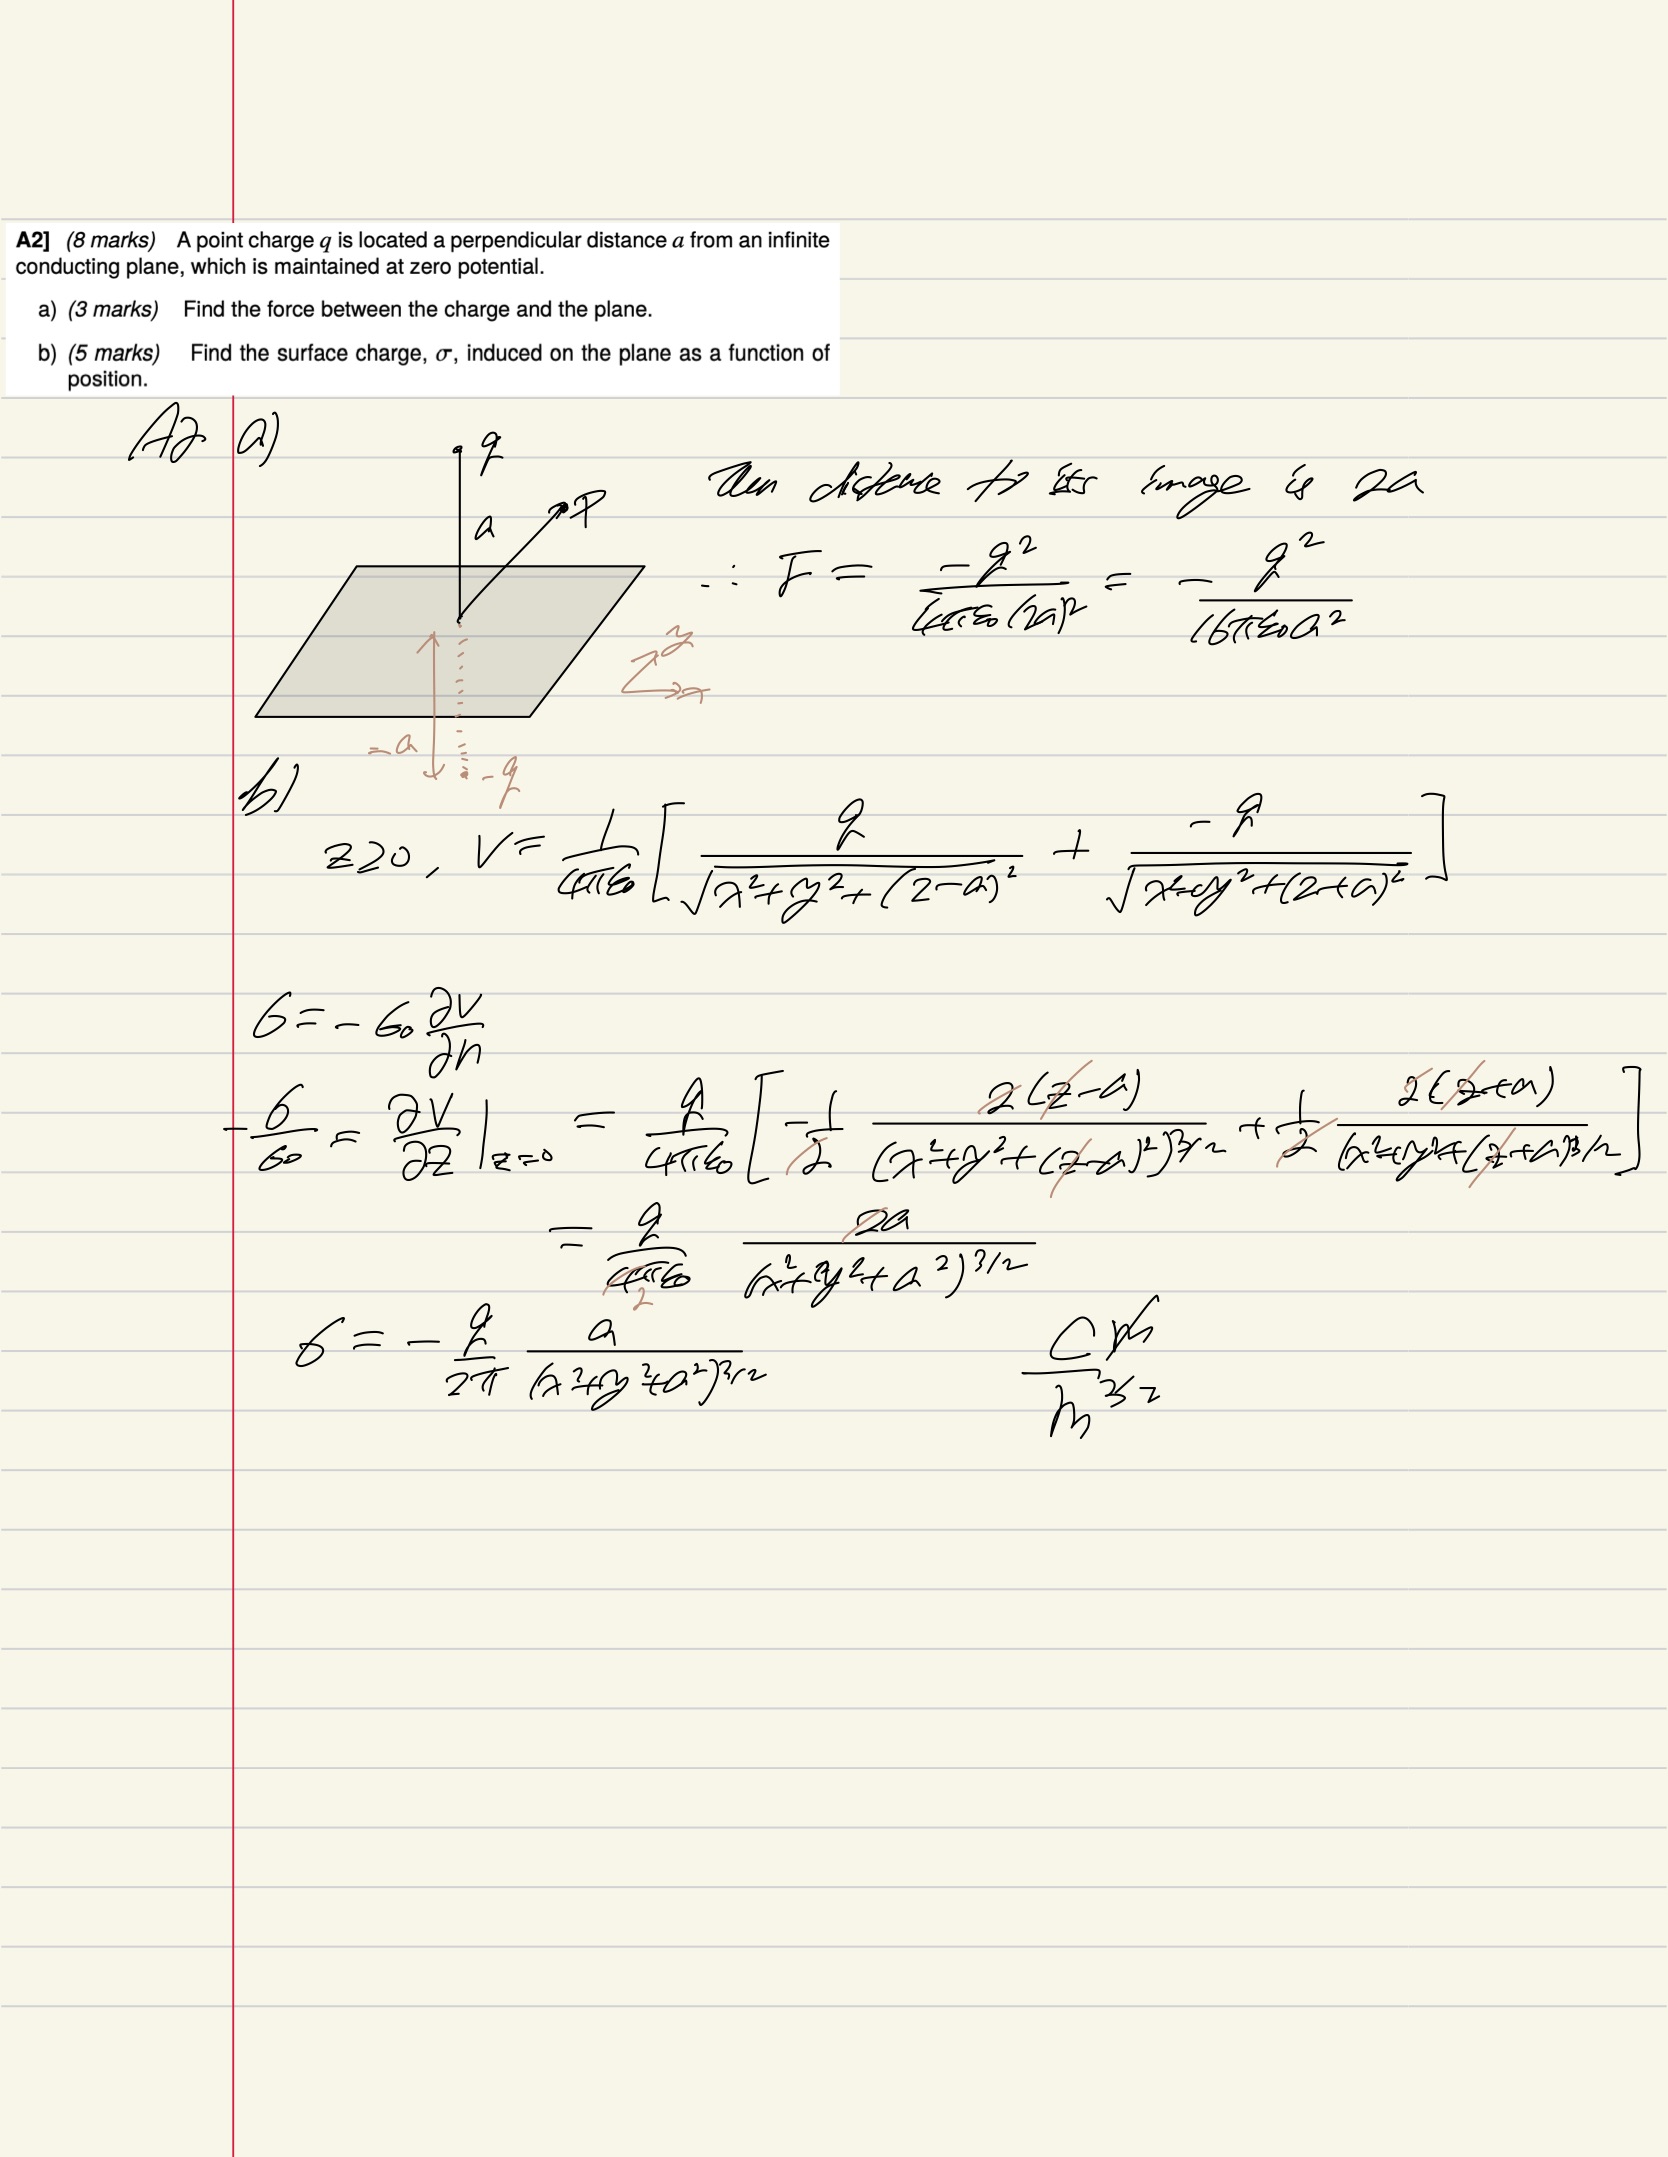 A2] (8 marks) A point charge q is located a perpendicular distance a from an infinite
conducting plane, which is maintained at zero potential.
a) (3 marks) Find the force between the charge and the plane.
b) (5 marks) Find the surface charge, σ, induced on the plane as a function of
position.
A2 a)
q
P
a
y
x
-a
-q
then distance to its image is 2a
∴ F = -q² / 4πε₀(2a)² = - q² / 16πε₀a²
b)
z≥0, V = 1/4πε₀ [ q / √(x²+y²+(z-a)²) + -q / √(x²+y²+(z+a)²) ]
σ = -ε₀ ∂V/∂n
-σ/ε₀ = ∂V/∂z |z=0 = q/4πε₀ [ -1/2 2(z-a) / (x²+y²+(z-a)²)^3/2 + 1/2 2(z+a) / (x²+y²+(z+a)²)^3/2 ]
= q/4πε₀ 2a / (x²+y²+a²)^3/2
2
σ = - q/2π a / (x²+y²+a²)^3/2
C m / m^3 2